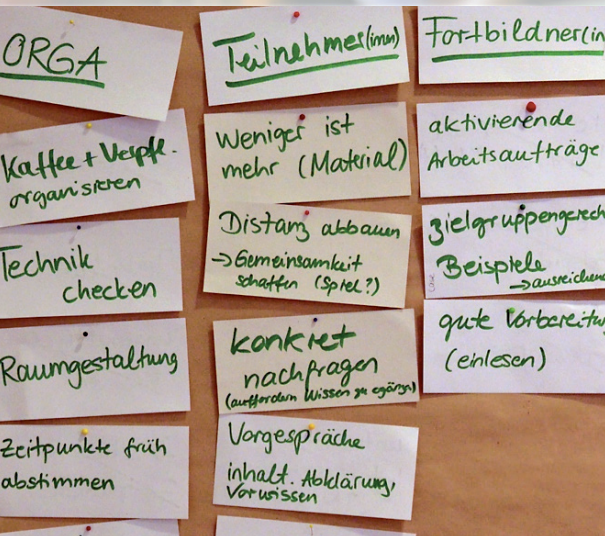 ORGA
Kaffee + Verpfl.
organisieren
Technik
checken
Raumgestaltung
Zeitpunkte früh
abstimmen
Teilnehmer(innen)
Weniger ist
mehr (Material)
Distanz abbauen
→ Gemeinsamkeit
schaffen (Spiel?)
konkret
nachfragen
(auffordern Wissen zu ergänzen)
Vorgespräche
inhalt. Abklärung,
Vorwissen
Fortbildner(in
aktivierende
Arbeitsaufträge
zielgruppengerech
Beispiele
→ ausreichend
gute Vorbereitu
(einlesen)